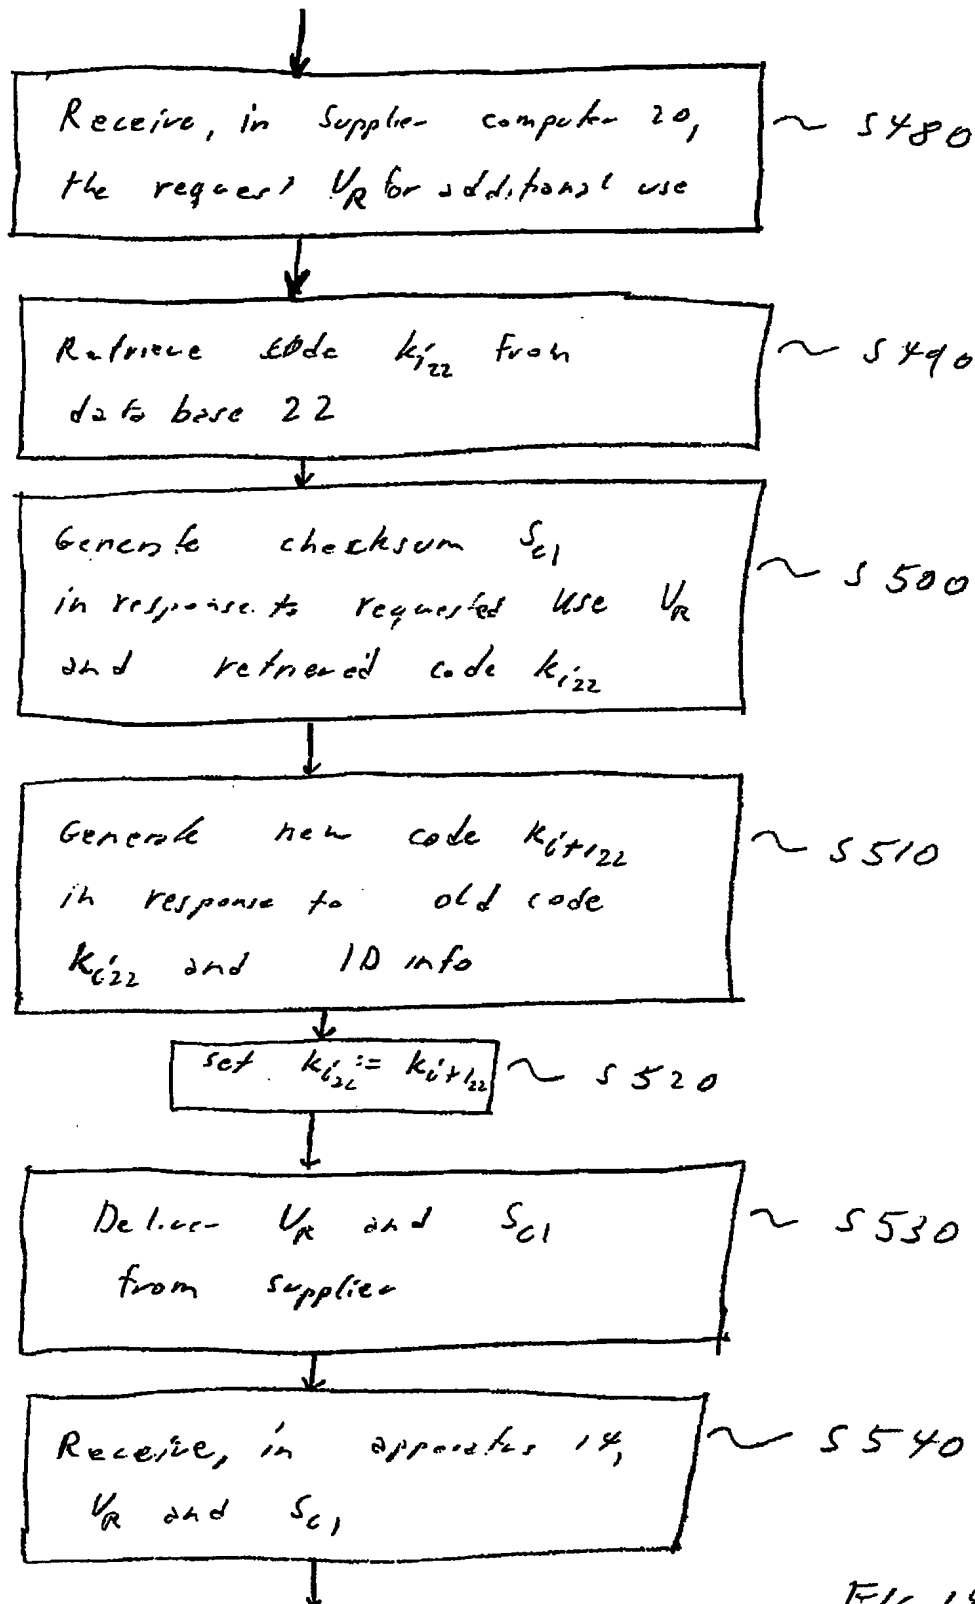 Receive, in Supplier computer 20, ~ S480
the request V_R for additional use
Retrieve code k_i22 from ~ S490
data base 22
Generate checksum S_C1
in response to requested use V_R ~ S500
and retrieved code k_i22
Generate new code k_i+1_22 ~ S510
in response to old code
k_i22 and ID info
set k_i22 := k_i+1_22 ~ S520
Deliver V_R and S_C1 ~ S530
from supplier
Receive, in apparatus 14, ~ S540
V_R and S_C1